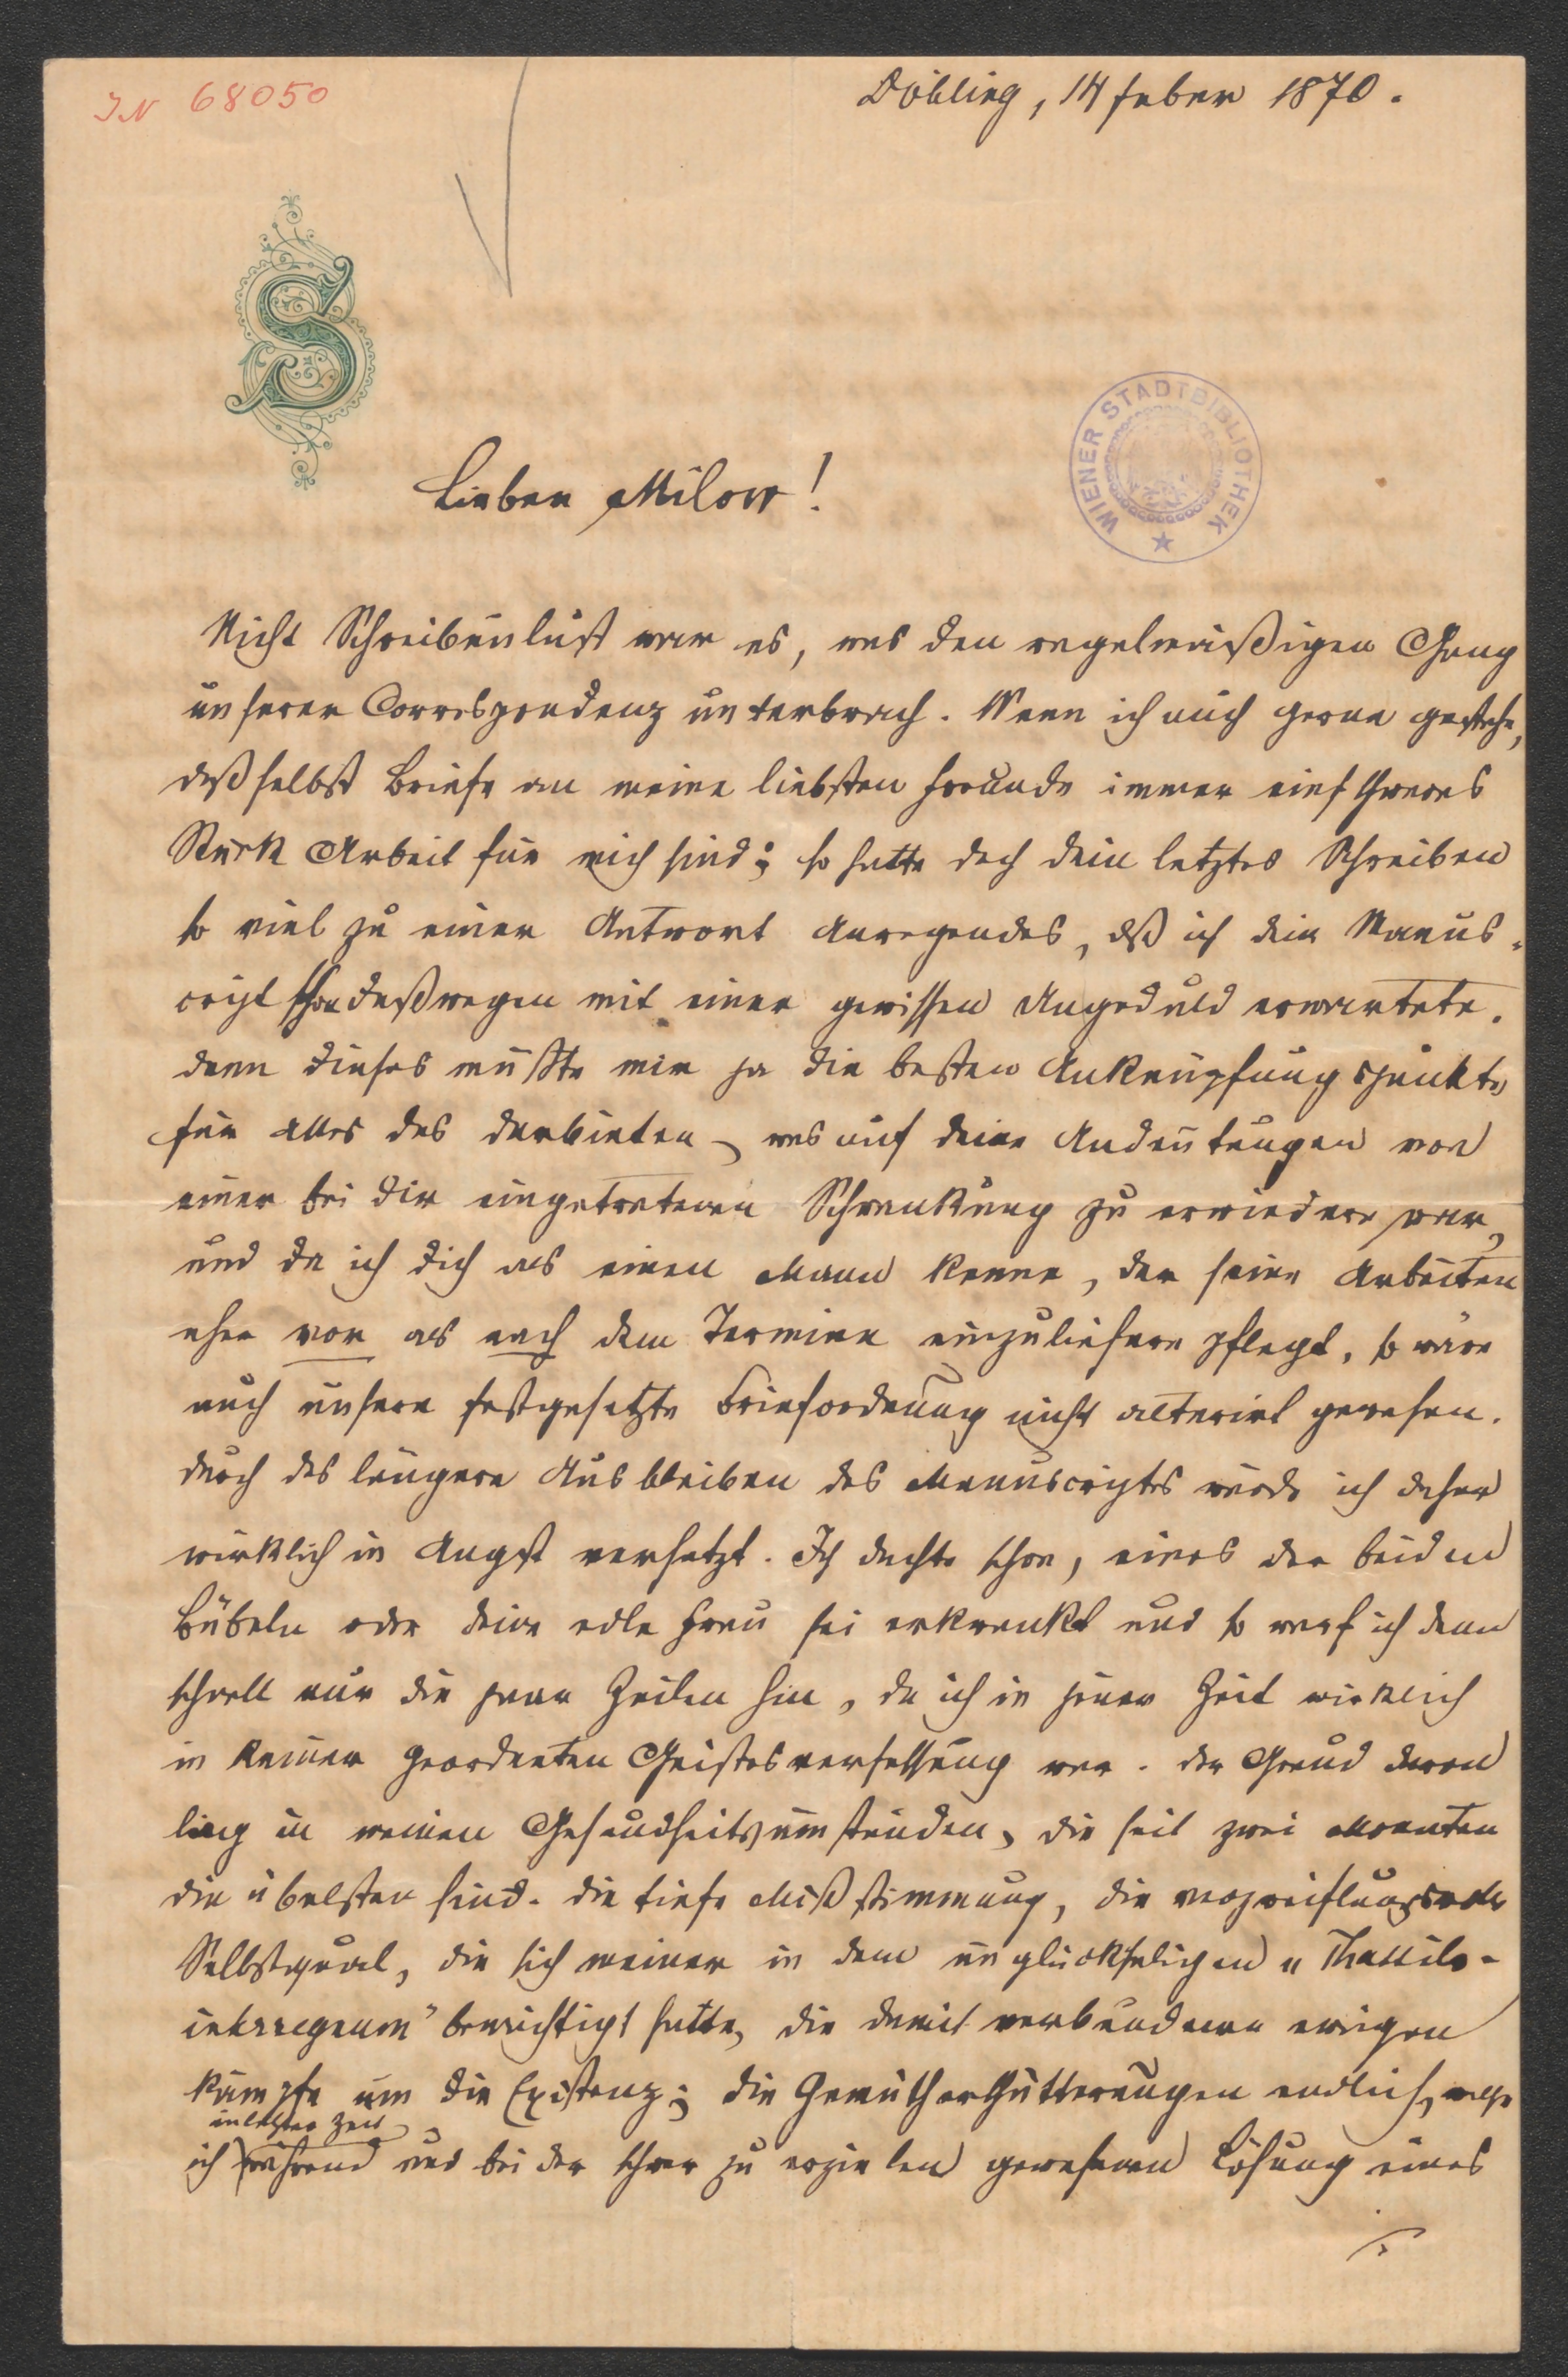 IN 68050
Döbling, 14 feber 1870.
S
WIENER STADTBIBLIOTHEK
Lieber Milow!
Nicht Schreibunlust war es, was den regelmäßigen Gang
unserer Correspondenz unterbrach. Wenn ich auch gerne gestehe,
daß selbst Briefe an meine liebsten Freunde immer ein schweres
Stück Arbeit für mich sind; so hatte doch dein letztes Schreiben
so viel zu einer Antwort Anregendes, daß ich dein Manus-
cript schon deßwegen mit einer gewissen Ungeduld erwartete.
denn dieses mußte mir ja die besten Anknüpfungspunkte
für alles das darbieten, was auf deine Andeutungen von
einer bei dir eingetretenen Schwenkung zu erwiedern war,
und da ich dich als einen Mann kenne, der seine Arbeiten
eher vor als nach dem Termine einzuliefern pflegt, so wäre
auch unsere festgesetzte Briefordnung nicht alterirt gewesen.
durch das längere Ausbleiben des Manuscriptes wurde ich daher
wirklich in Angst versetzt. Ich dachte schon, eines der beiden
Bübeln oder deine edle Frau sei erkrankt und so warf ich denn
schnell nur die paar Zeilen hin, da ich in jener Zeit wirklich
in keiner geordneten Geistesverfassung war. der Grund davon
liegt in meinen Gesundheitsumständen, die seit zwei Monaten
die übelsten sind. die tiefe Mißstimmung, die verzweiflungsvolle
Selbstqual, die sich meiner in dem unglückseligen „Thassilo-
interregnum" bemächtigt hatte, die damit verbundenen ewigen
Kämpfe um die Existenz; die Gemütherschütterungen endlich, welche
in letzter Zeit
ich während und bei der schwer zu erzielen gewesenen Lösung eines